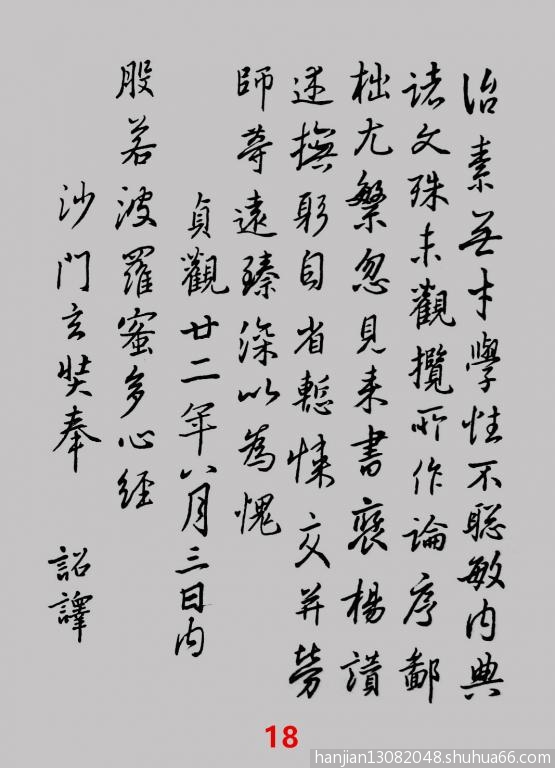 治素无才學性不聡敏内典
諸文殊未觀攬所作論序鄙
拙尤繁忽見来書褒揚讃
述撫躬自省慙悚交并勞
師等遠臻深以為愧
貞觀廿二年八月三日内
般若波羅蜜多心經
沙門玄奘奉 詔譯
18
hanjian13082048.shuhua66.com